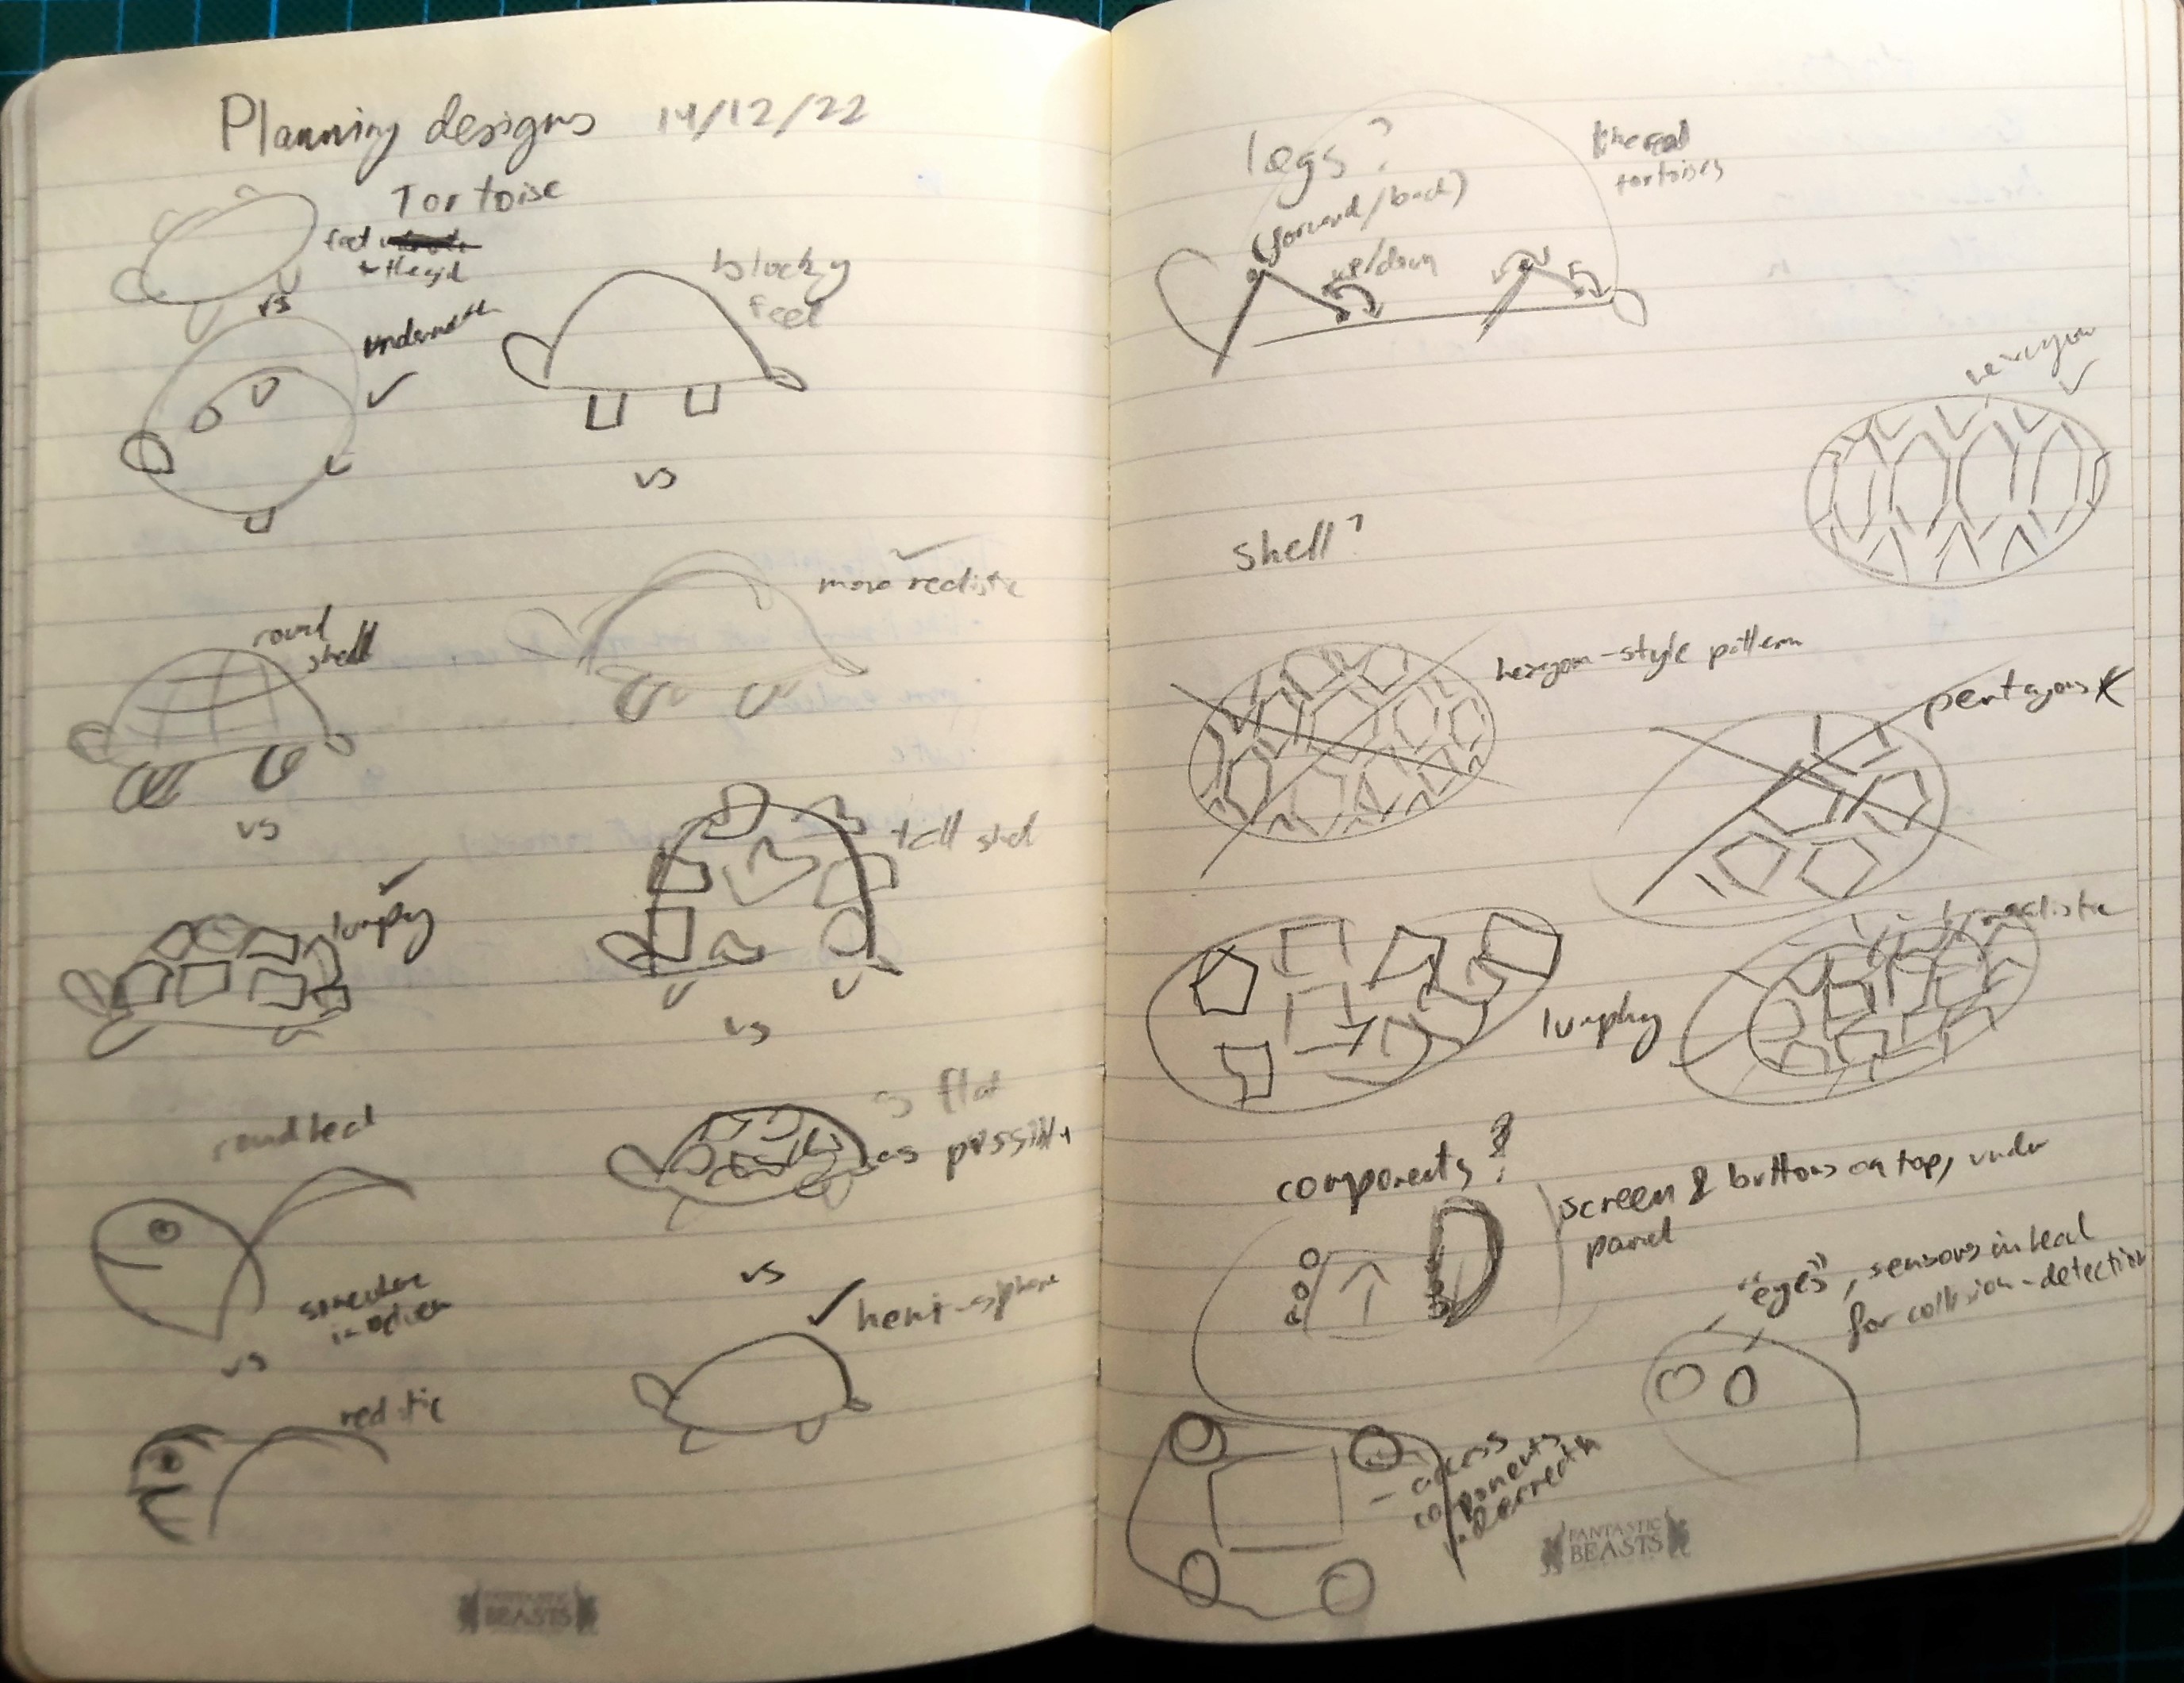 Planning designs 14/12/22
Tortoise
feet
to the side
vs
underneath
blocky
feet
vs
more realistic
round
shell
vs
lumphy
tall shell
vs
as flat
as possible
vs
hemi-sphere
round head
somewhere
in between
vs
realistic
FANTASTIC
BEASTS
legs?
(forward/back)
up/down
like real
tortoises
hexagon
shell?
hexagon-style pattern
pentagons
lumphy
realistic
components?
screen & buttons on top, under
panel
"eyes", sensors in head
for collision-detection
- access
components
underneath
FANTASTIC
BEASTS